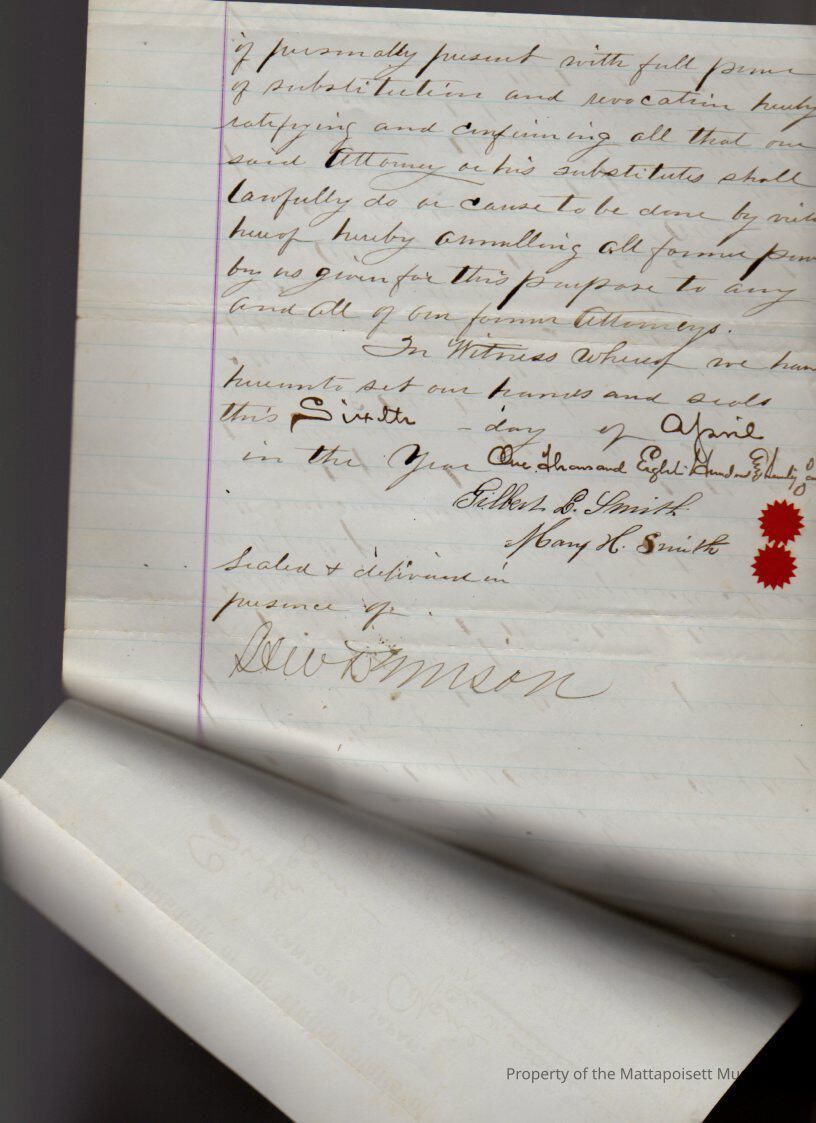 if personally present with full power
of substitution and revocation hereby
ratifying and confirming all that our
said Attorney or his substitutes shall
lawfully do or cause to be done by virt
hereof hereby annulling all former pow
by us given for this purpose to any
and all of our former Attorneys.
In Witness Whereof we hav
hereunto set our hands and seals
this Sixth - day of April
in the Year One Thousand Eight Hundred &
Gilbert L. Smith
Mary H. Smith
Sealed & delivered in
presence of.
Property of the Mattapoisett Mu